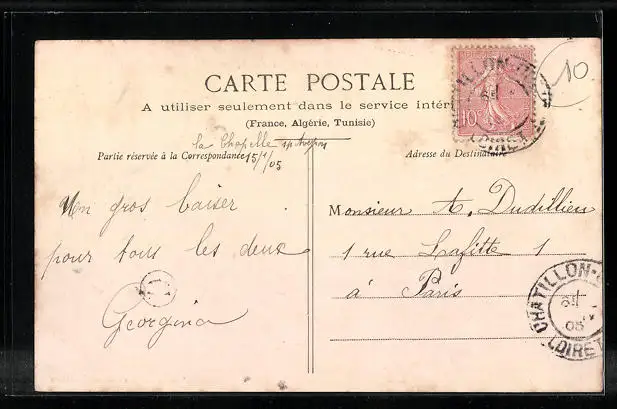 10
CARTE POSTALE
A utiliser seulement dans le service intéri
(France, Algérie, Tunisie)
10
La Chapelle
15/1/05
Partie réservée à la Correspondance
Adresse du Destinataire
Un gros baiser
pour tous les deux
Georgina
Monsieur A. Dudillieu
1 rue Lafitte 1
à Paris
CHATILLON-
05
LOIRET